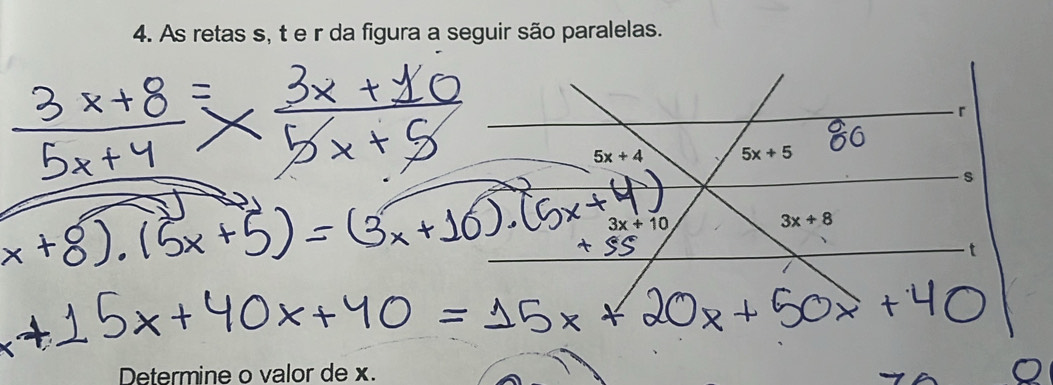 4. As retas s, t e r da figura a seguir são paralelas.
3x+8 = 3x+10
5x+4 × 5x+5
r
5x + 4
5x + 5
80
s
x+8).(5x+5)=(3x+10).(5x+4)
3x + 10
3x + 8
+ 55
t
+15x+40x+40 = 15x + 20x+50x+40
Determine o valor de x.